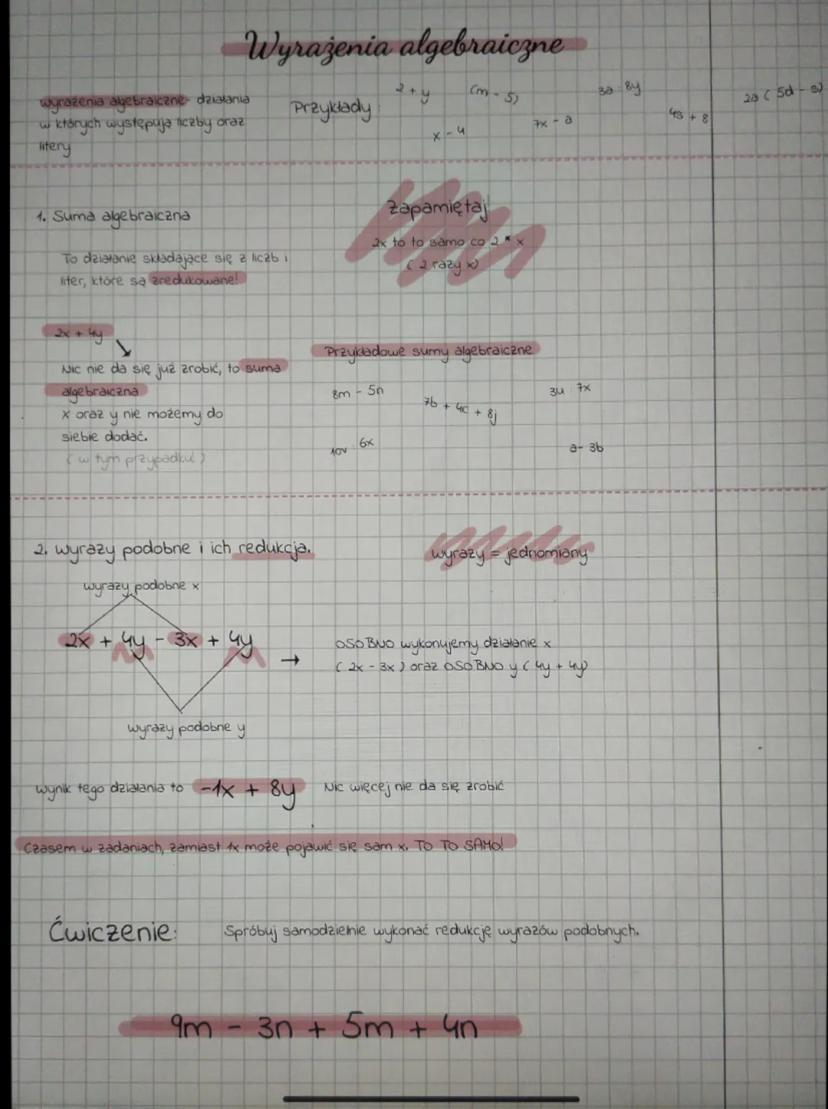 Wyrażenia algebraiczne
wyrażenia algebraiczne- działania
w których występują liczby oraz
litery
Przykłady:
2 + y
(m - 5)
3a · 8y
2a (5d - a)
x - 4
7x - a
4s + 8
1. Suma algebraiczna
To działanie składające się z liczb i
liter, które są zredukowane!
Zapamiętaj
2x to to samo co 2 * x
( 2 razy x)
2x + 4y
Nic nie da się już zrobić, to suma
algebraiczna
x oraz y nie możemy do
siebie dodać.
( w tym przypadku )
Przykładowe sumy algebraiczne
8m - 5n
7b + 4c + 8j
3u · 7x
10v · 6x
a - 3b
2. Wyrazy podobne i ich redukcja.
wyrazy = jednomiany
wyrazy podobne x
2x + 4y - 3x + 4y
→
OSOBNO wykonujemy działanie x
( 2x - 3x ) oraz OSOBNO y ( 4y + 4y)
wyrazy podobne y
wynik tego działania to -1x + 8y Nic więcej nie da się zrobić
Czasem w zadaniach, zamiast 1x może pojawić się sam x. TO TO SAMO!
Ćwiczenie: Spróbuj samodzielnie wykonać redukcję wyrazów podobnych.
9m - 3n + 5m + 4n